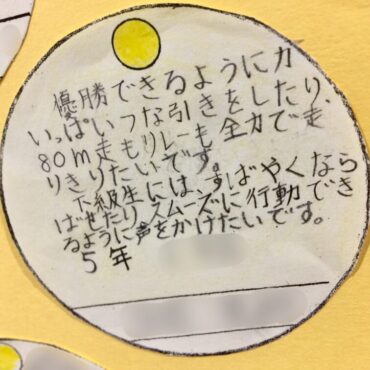 優勝できるように力
いっぱいつな引きをしたり、
80m走もリレーも全力で走
りきりたいです。
下級生には、すばやくなら
ばせたり、スムーズに行動でき
るように声をかけたいです。
5年